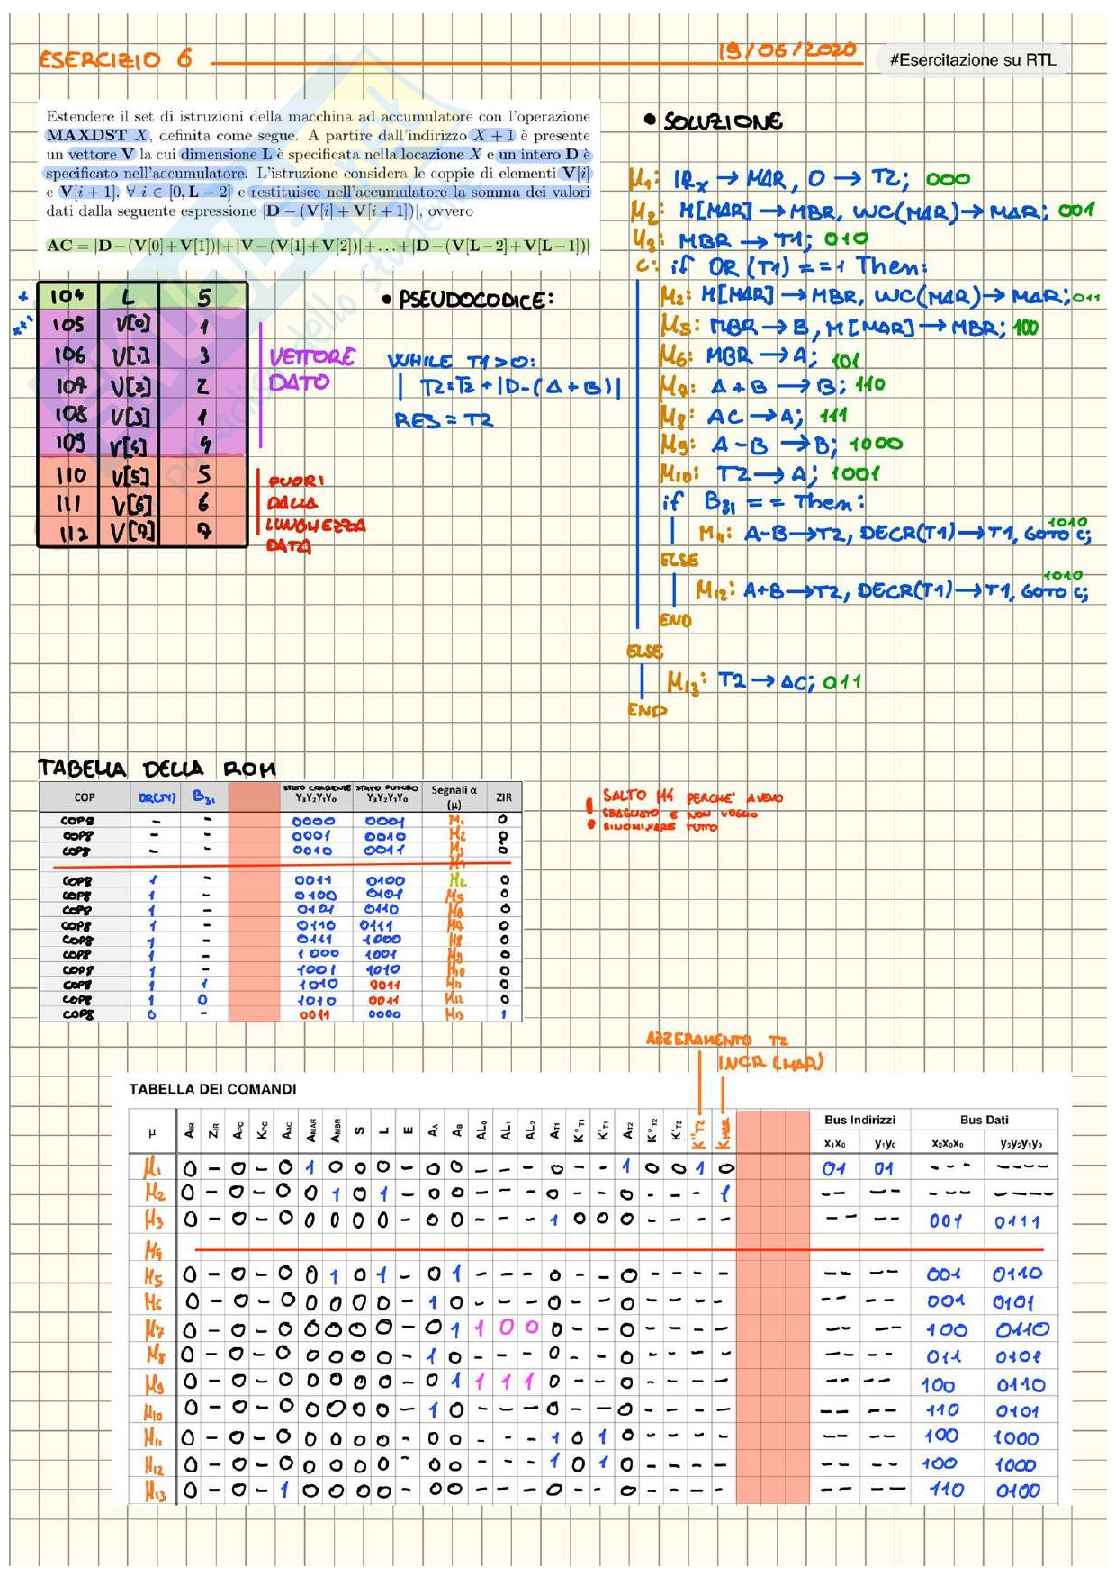 ESERCIZIO 6
19/06/2020
#Esercitazione su RTL
Estendere il set di istruzioni della macchina ad accumulatore con l'operazione
MAXDST X, definita come segue. A partire dall'indirizzo X + 1 è presente
un vettore V la cui dimensione L è specificata nella locazione X e un intero D è
specificato nell'accumulatore. L'istruzione considera le coppie di elementi V[i]
e V[i + 1], ∀ i ∈ [0, L − 2] e restituisce nell'accumulatore la somma dei valori
dati dalla seguente espressione |D − (V[i] + V[i + 1])|, ovvero
AC = |D−(V[0]+V[1])|+|V−(V[1]+V[2])|+...+|D−(V[L−2]+V[L−1])|
104 L 5
105 V[0] 1
106 V[1] 3
107 V[2] 2
108 V[3] 1
109 V[4] 4
110 V[5] 5
111 V[6] 6
112 V[7] 7
VETTORE
DATO
FUORI
DALLA
LUNGHEZZA
DATA
• PSEUDOCODICE:
WHILE T1>0:
T2=T2+|D-(A+B)|
RES=T2
• SOLUZIONE
M1: IRx → MAR, 0 → T2; 000
M2: M[MAR] → MBR, INC(MAR) → MAR; 001
M3: MBR → T1; 010
C: if OR(T1)==1 Then:
M2: M[MAR] → MBR, INC(MAR) → MAR; 011
M5: MBR → B, M[MAR] → MBR; 100
M6: MBR → A; 101
M7: A+B → B; 110
M8: AC → A; 111
M9: A-B → B; 1000
M10: T2 → A; 1001
if B31 == Then:
M11: A-B → T2, DECR(T1) → T1, GOTO C; 1010
ELSE
M12: A+B → T2, DECR(T1) → T1, GOTO C; 1010
END
ELSE
M13: T2 → AC; 011
END
TABELLA DELLA ROM
COP OR(T1) B31 STATO CORRENTE Y3Y2Y1Y0 STATO FUTURO Y3Y2Y1Y0 Segnali α (μ) ZIR
COP8 - - 0000 0001 M1 0
COP8 - - 0001 0010 M2 0
COP8 - - 0010 0011 M3 0
COP8 1 - 0011 0100 M2 0
COP8 1 - 0100 0101 M5 0
COP8 1 - 0101 0110 M6 0
COP8 1 - 0110 0111 M7 0
COP8 1 - 0111 1000 M8 0
COP8 1 - 1000 1001 M9 0
COP8 1 - 1001 1010 M10 0
COP8 1 1 1010 0011 M11 0
COP8 1 0 1010 0011 M12 0
COP8 0 - 0011 0000 M13 1
! SALTO M4 PERCHE' AVEVO
SBAGLIATO E NON VOGLIO
RINOMINARE TUTTO
AZZERAMENTO T2
INCR(MAR)
TABELLA DEI COMANDI
Bus Indirizzi Bus Dati
μ AIR ZIR APC KPC AAC AMAR AMBR S L E AA AB AL0 AL1 AL2 AT1 K°T1 K'T1 AT2 K°T2 K'T2 K"T2 KMAR x1x0 y1y0 x2x0x0 y3y2y1y3
M1 0 - 0 - 0 1 0 0 0 - 0 0 - - - 0 - - 1 0 0 1 0 01 01 --- ----
M2 0 - 0 - 0 0 1 0 1 - 0 0 - - - 0 - - 0 - - - 1 -- -- --- ----
M3 0 - 0 - 0 0 0 0 0 - 0 0 - - - 1 0 0 0 - - - - -- -- 001 0111
M4
M5 0 - 0 - 0 0 1 0 1 - 0 1 - - - 0 - - 0 - - - - -- -- 001 0110
M6 0 - 0 - 0 0 0 0 0 - 1 0 - - - 0 - - 0 - - - - -- -- 001 0101
M7 0 - 0 - 0 0 0 0 0 - 0 1 1 0 0 0 - - 0 - - - - -- -- 100 0110
M8 0 - 0 - 0 0 0 0 0 - 1 0 - - - 0 - - 0 - - - - -- -- 011 0101
M9 0 - 0 - 0 0 0 0 0 - 0 1 1 1 1 0 - - 0 - - - - -- -- 100 0110
M10 0 - 0 - 0 0 0 0 0 - 1 0 - - - 0 - - 0 - - - - -- -- 110 0101
M11 0 - 0 - 0 0 0 0 0 - 0 0 - - - 1 0 1 0 - - - - -- -- 100 1000
M12 0 - 0 - 0 0 0 0 0 - 0 0 - - - 1 0 1 0 - - - - -- -- 100 1000
M13 0 - 0 - 1 0 0 0 0 - 0 0 - - - 0 - - 0 - - - - -- -- 110 0100